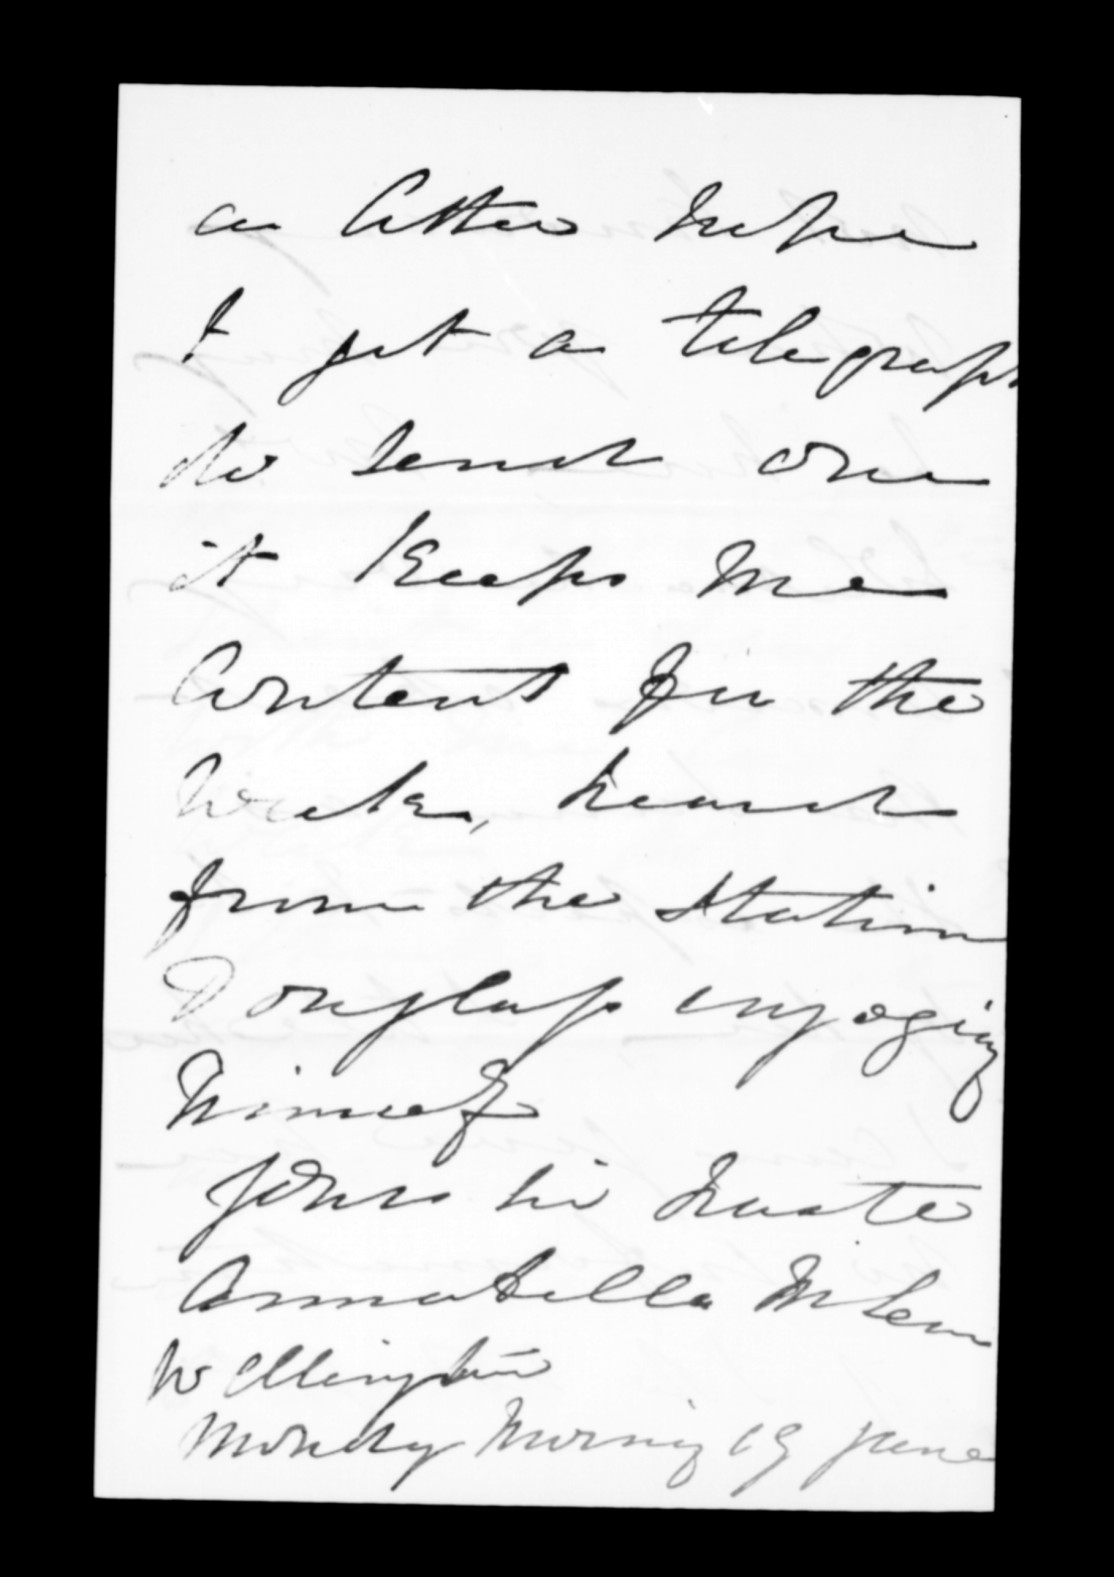 a letter hope
I get a telegraph
do send one
it keeps me
Content for the
Week, heard
from the Station
Douglass enjoying
himself
Yours in haste
Annabella McLean
Wellington
Monday Morning 19 June